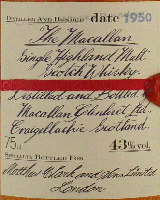 DISTILLED AND BONDED date 1950
The Macallan
Single Highland Malt
Scotch Whisky
Distilled and Bottled by
Macallan Glenlivet Ltd.
Craigellachie Scotland.
75cl 43% vol.
SPECIALLY BOTTLED FOR
Matthew Clark and Sons Limited
London